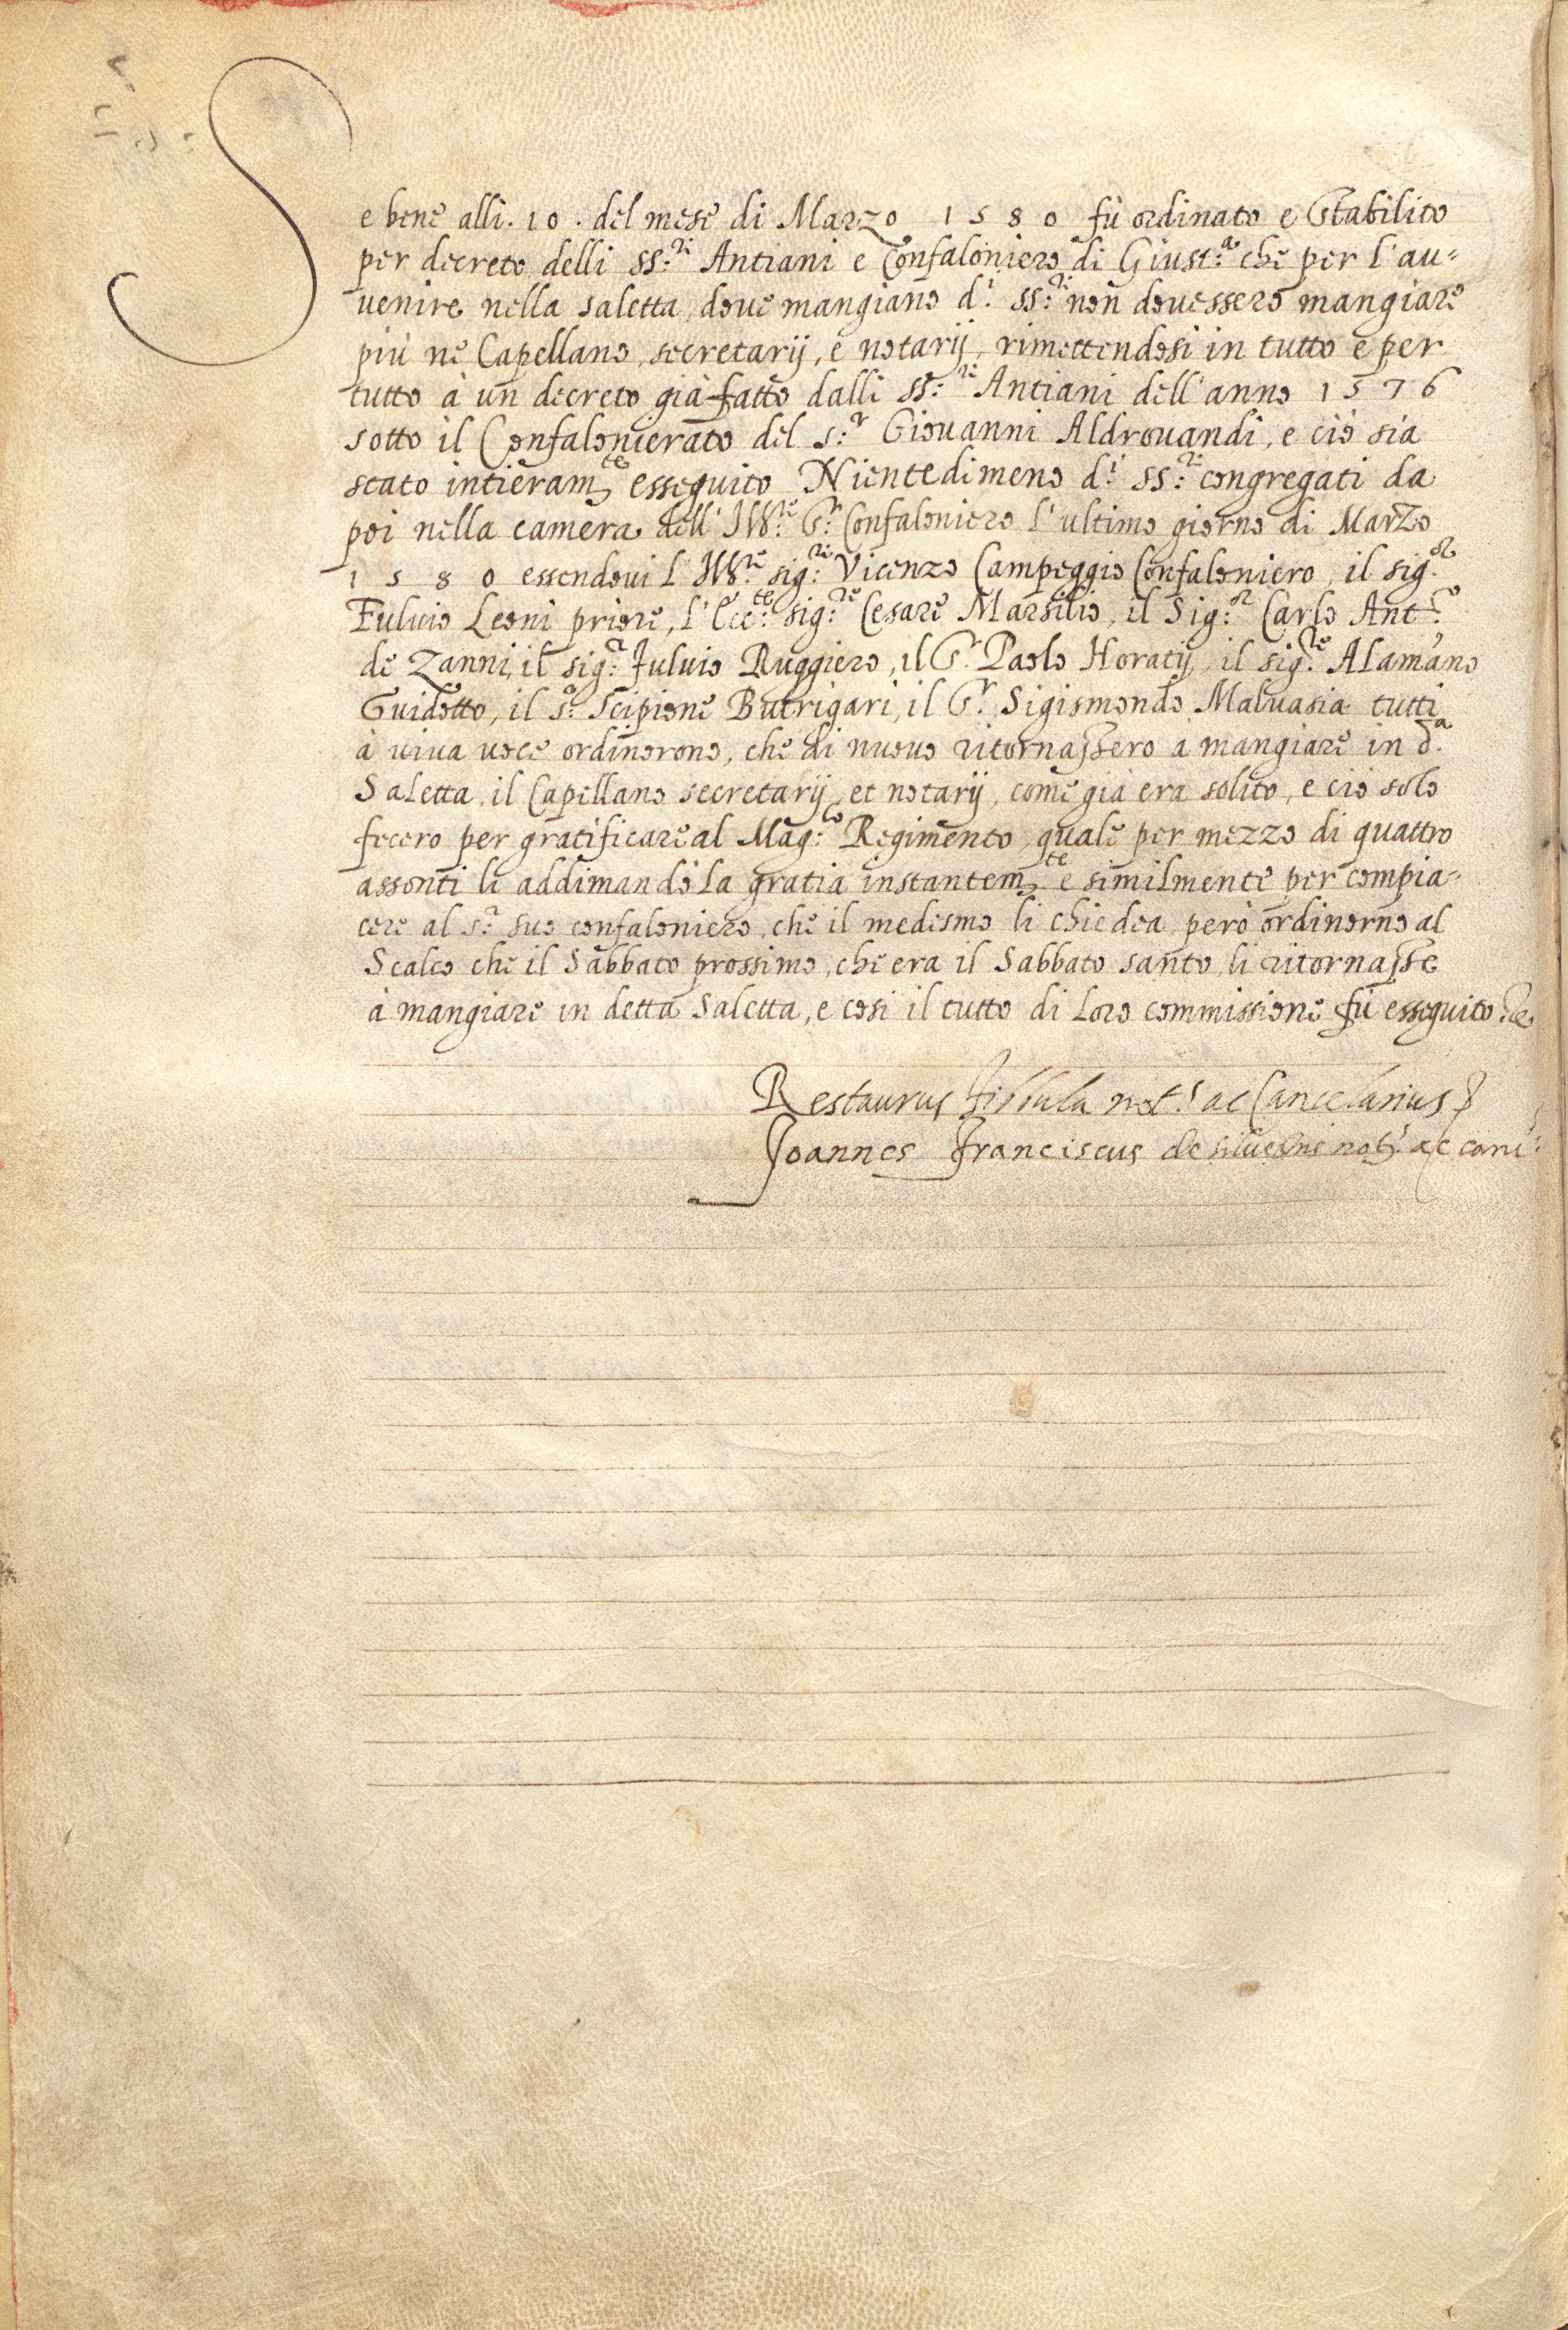 Se bene alli . 10 . del mese di Marzo 1580 fù ordinato e Stabilito
per decreto delli SS:ri Antiani e Confaloniero di Giust:a che per l'au=
uenire nella saletta doue mangiano d.i SS:ri non douessero mangiare
più ne Capellano, secretarij, e notarij, rimettendosi in tutto e per
tutto à un decreto già fatto dalli SS:ri Antiani dell'anno 1576
sotto il Confalonierato del S:r Giouanni Aldrouandi, e ciò sia
stato intieram.te esseguito Nientedimeno d.i SS:ri congregati da
poi nella camera dell' Ill:re S.r Confaloniero l'ultimo giorno di Marzo
1580 essendoui l'Ill:re sig:re Vicenzo Campeggio Confaloniero, il sig:or
Fuluio Leoni priore, l'Ecc:te sig:re Cesare Marsilio, il Sig:or Carlo Ant:o
de Zanni, il sig:r Fuluio Ruggiero, il S.r Paolo Horatij, il sig:re Alamano
Guidotto, il S:r Scipione Butrigari, il S.r Sigismondo Maluasia tutti
à uiua uoce ordinorono, che di nuouo ritornassero a mangiare in d.a
Saletta il Capellano secretarij et notarij, come già era solito, e ciò solo
fecero per gratificare al Mag:co Regimento, quale per mezzo di quattro
assonti li addimandò la gratia instantem.te e similmente per compia=
cere al S:r suo confaloniero, che il medesmo li chiedea però ordinorno al
Scalco che il Sabbato prossimo, che era il Sabbato santo, li ritornasse
à mangiare in detta Saletta, e così il tutto di loro commissione fù esseguito
Restaurus not:s ac Cancelarius
Joannes Franciscus de not:s ac canc: